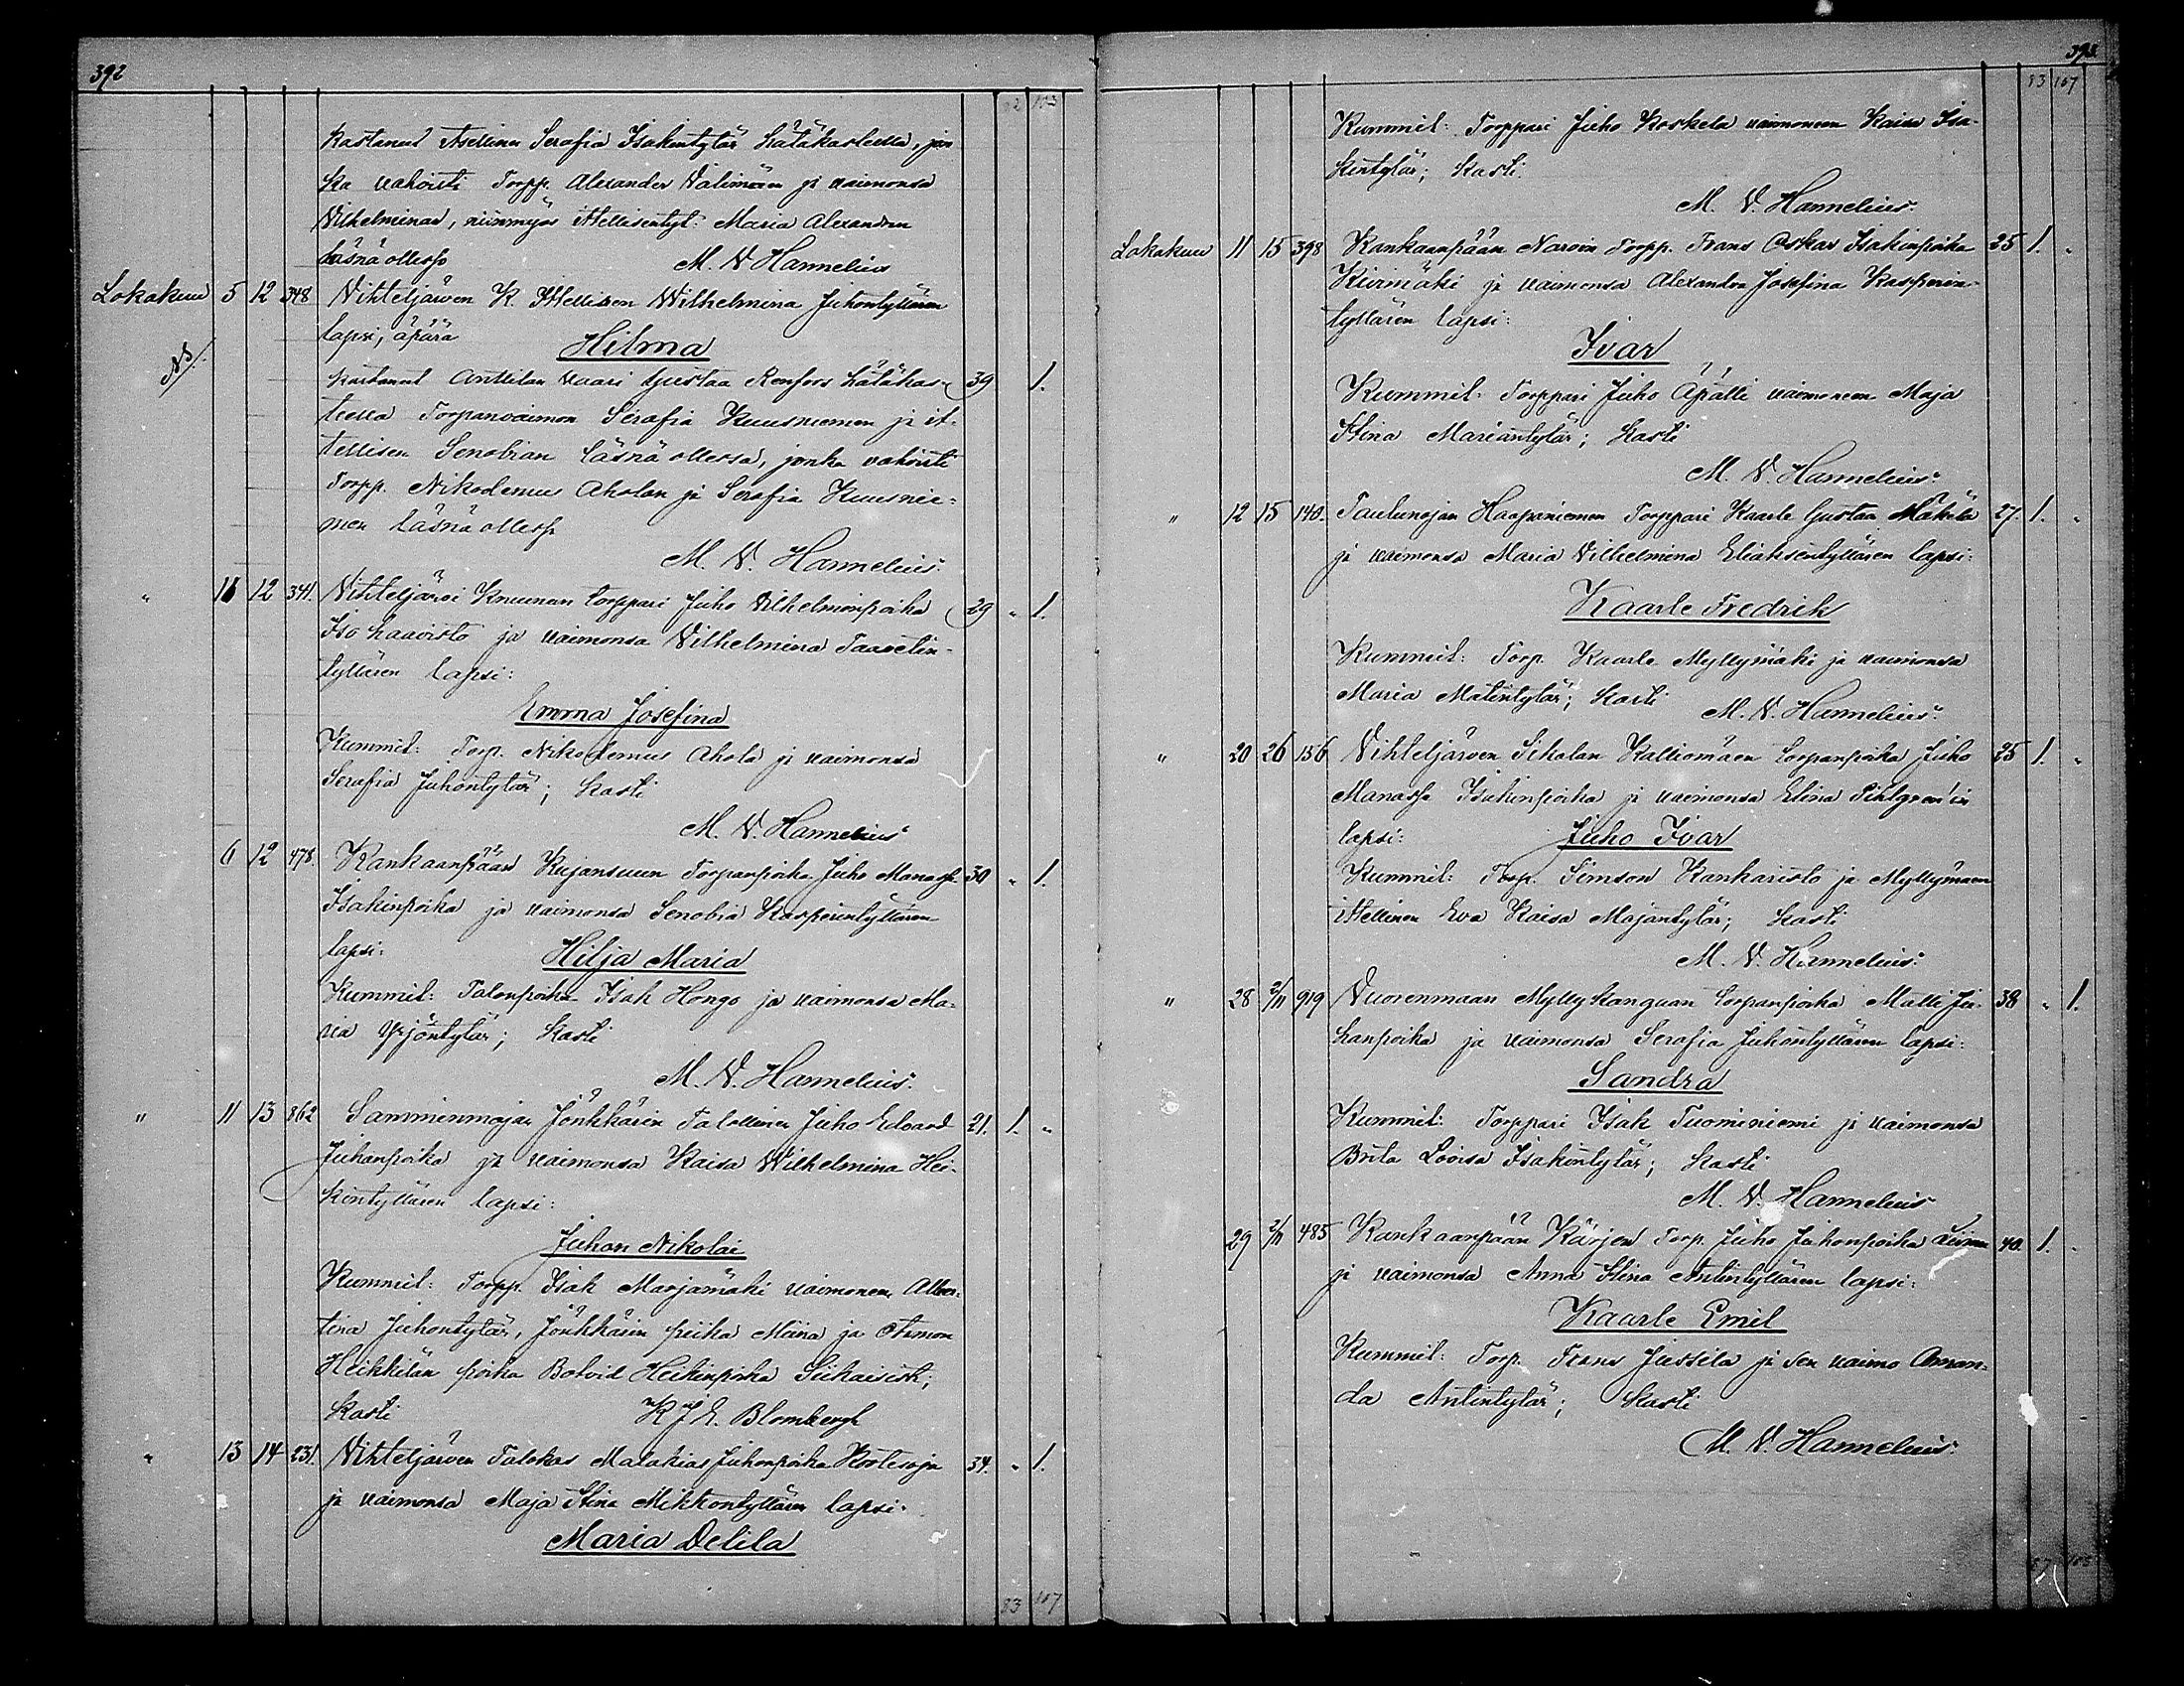 392
82 103
Kastanut Itsellinen Serafia Isakintytär hätäkasteella, jon
ka vahvisti Torpp. Alexander Välimäen ja vaimonsa
Vilhelminan, niinmyös Itsellisentyt: Maria Alexandra
läsnä ollessa M. V. Hannelius
Lokakuu 5 12 348 Vihteljärven K. Itsellisen Wilhelmina Juhontyttären
lapsi, äpärä Hilma
kastanut Anttilan vaari Gustaa Renfors hätäkas- 39 1.
teella Torpanvaimon Serafia Kuusniemen ja it-
tellisen Senobian läsnä ollessa, jonka vahvisti
Torpp. Nikodemus Aholan ja Serafia Kuusnie-
men läsnä ollessa
M. V. Hannelius.
" 12 341. Vihteljärvi Knuunan torppari Juho Vilhelminpoika 29 " 1.
Iso haavisto ja vaimonsa Wilhelmina Taavetin-
tyttären lapsi:
Emma Josefina
Kummit: Torp. Nikodemus Ahola ja vaimonsa
Serafia Juhontytär; Kasti
M. V. Hannelius
6 12 478. Kankaanpään Kujansuun Torpanpoika Juho Manasse 30 " 1.
Isakinpoika ja vaimonsa Senobia Kasperintyttären
lapsi: Hilja Maria
Kummit: Talonpoika Isak Hongo ja vaimonsa Ma-
ria Yrjöntytär; Kasti
M. V. Hannelius.
" 11 13 862 Samminmajan Jönkkärin Talollinen Juho Edvard 21. 1. "
Juhanpoika ja vaimonsa Kaisa Wilhelmina Hei-
kintyttären lapsi:
Juhon Nikolai
Kummit: Torpp. Isak Marjamäki vaimoneen Alber-
tina Juhontytär, Jönkkärin piika Miina ja Otamon
Heikkilän poika Botvid Heikinpoika Siikaisist;
Kasti K J E. Blombergh
" 13 14 231. Vihteljärven Talokas Malakias Juhonpoika Kortesoja 34. " 1.
ja vaimonsa Maja Stina Mikkontyttären lapsi:
Maria Delila
83 107
393
83 107
Kummit: Torppari Juho Koskela vaimoneen Kaisa Isa-
kintytär; Kasti.
M. V. Hannelius.
Lokakuu 11 15 398 Kankaanpään Narvin Torpp. Frans Oskar Isakinpoika 25 1. "
Kivimäki ja vaimonsa Alexandra Josefina Kasperin-
tyttären lapsi:
Ivar
Kummit: Torppari Juho Äpätti vaimoneen Maja
Stina Mariantytär; Kasti
M. V. Hannelius.
" 12 15 140. Taulunojan Haapaniemen Torppari Kaarle Gustaa Mäkelä 27. 1. "
ja vaimonsa Maria Vilhelmina Eliaksentyttären lapsi:
Kaarle Fredrik
Kummit: Torp. Kaarle Myllymäki ja vaimonsa
Maria Matintytär; Kasti M. V. Hannelius.
" 20 26 156 Vihteljärven Sikalan Kalliomäen torpanpoika Juho 25 1. "
Manasse Isakinpoika ja vaimonsa Elina Pihlgren'in
lapsi: Juho Ivar
Kummit: Torp. Simson Kankaristo ja Myllymäen
itsellinen Eva Kaisa Majantytär; Kasti
M. V. Hannelius.
" 28 2/11 919 Vuorenmaan Myllykangaan torpanpoika Matti Ju- 38 " 1.
hanpoika ja vaimonsa Serafia Juhontyttären lapsi:
Sandra
Kummit: Torppari Isak Tuominiemi ja vaimonsa
Brita Lovisa Isakintytär; Kasti
M. V. Hannelius
29 2/11 485 Kankaanpään Kärjen Torp. Juho Juhonpoika 40. 1. "
ja vaimonsa Anna Stina Antintyttären lapsi:
Kaarle Emil
Kummit: Torp. Frans Jussila ja sen vaimo Aman-
da Antintytär; Kasti
M. V. Hannelius.